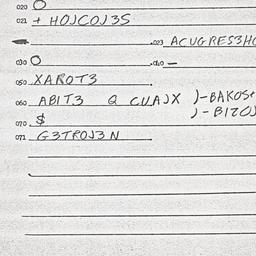 020 O
021 + HOJCOJ3S
.023 ACUGRES3HO
030 O .040 —
050 XAROT3
060 ABIT3 Q CUAJX )-BAKOS+
)-BIZOJ
070 $
071 G3TROJ3N